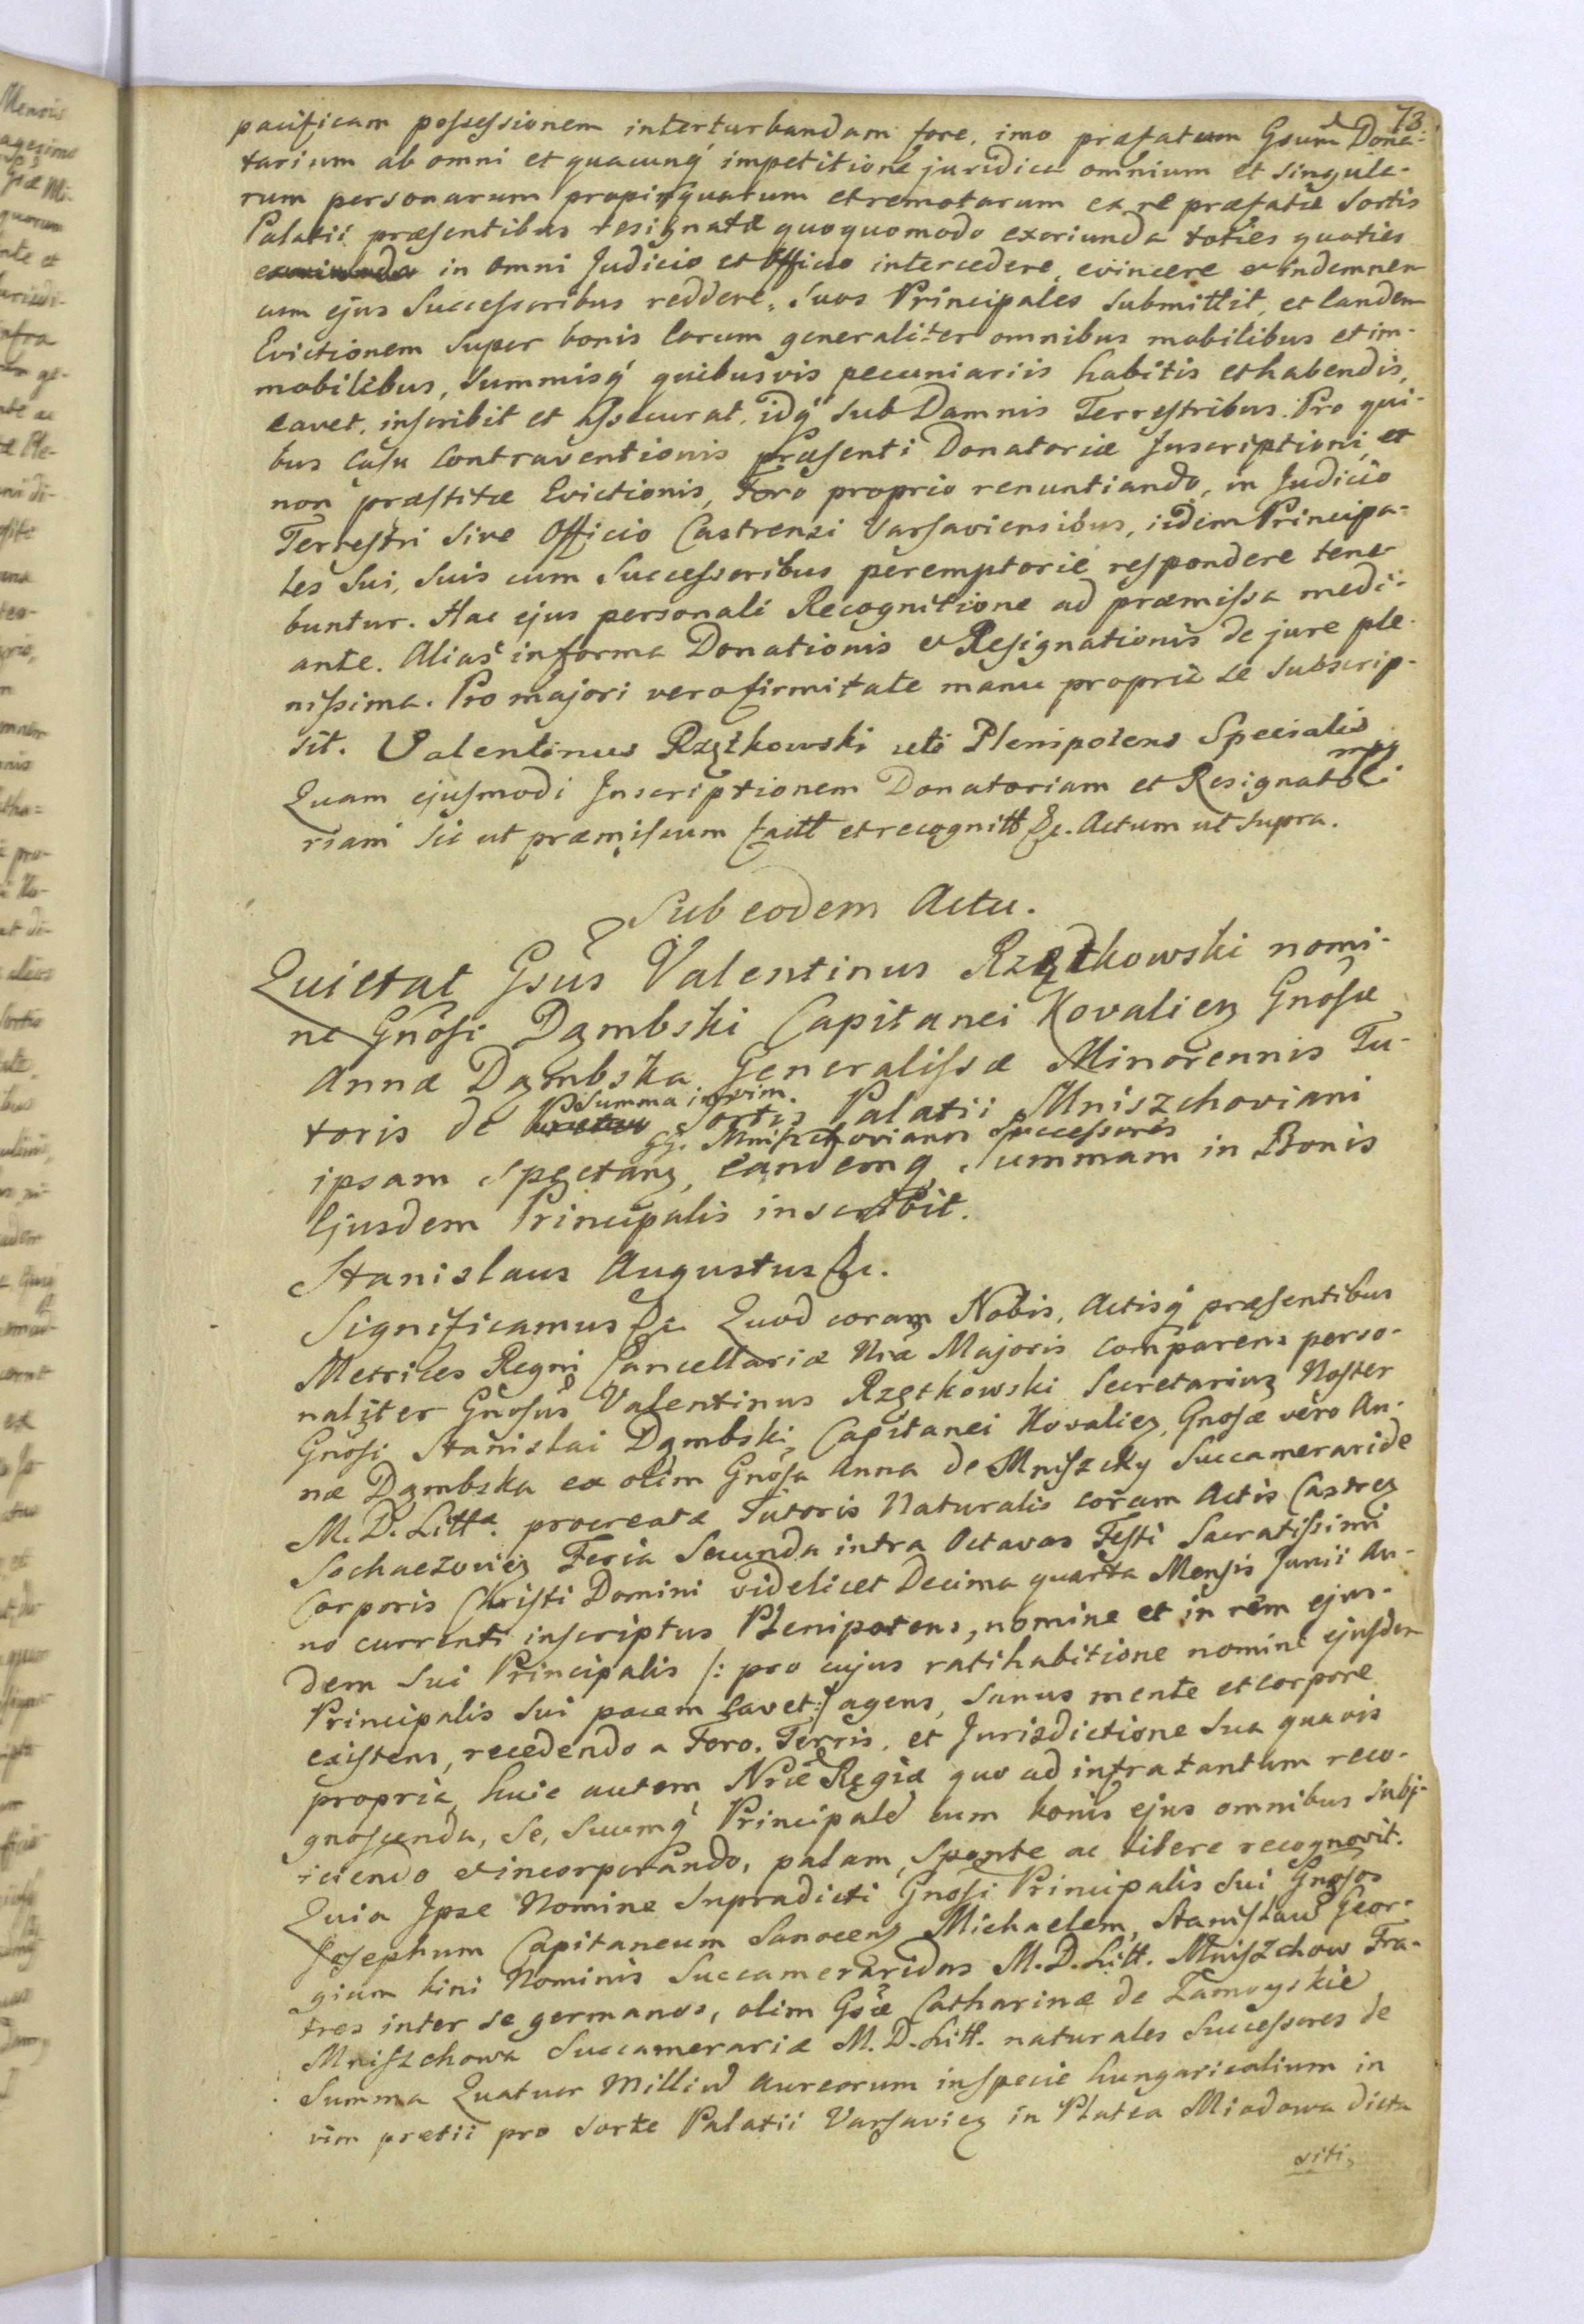 73
pacificam possessionem interturbandam fore, imo præfatum Gsum Dona-
tarium ab omni et quacunq́ impetitione juridica omnium et singula-
rum personarum propinquarum et remotarum ex re præfatæ Sortis
Palatii præsentibus resignatæ quoquomodo exoriunda toties quoties
in omni Judicio et Officio intercedere, evincere et indemnem
cum ejus Successoribus reddere, Suos Principales submittit, et eandem
Evictionem Super bonis Eorum generaliter omnibus mobilibus et im-
mobilibus, Summisq́ quibusvis pecuniariis habitis et habendis,
cavet, inscribit et assecurat, idq́ sub Damnis Terrestribus. Pro qui-
bus Casu Contraventionis præsenti Donatoriæ Inscriptioni, et
non præstitæ Evictionis, Foro proprio renuntiando, in Judicio
Terrestri Sive Officio Castrensi Varsaviensibus, iidem Principa-
les Sui, Suis cum Successoribus peremptorie respondere tene-
buntur. Hac ejus personali Recognitione ad præmissa medi-
ante. Alias in forma Donationis et Resignationis de jure ple-
nissima. Pro majori vero firmitate manu propria se subscrip-
sit. Valentinus Rzętkowski uti Plenipotens Specialis
mpp
Quam ejusmodi Inscriptionem Donatoriam et Resignato-
riam Sic ut præmissum facitt et recognitt &c. Actum ut Supra.
Sub eodem Actu.
Quietat Gsus Valentinus Rzętkowski nomi-
ne Gnosi Dąmbski Capitanei Kovalien Gnosæ
Annæ Dąmbska Generalissæ Minorennis Tu-
toris de Summa in vim Sortis Palatii Mniszchoviani
GG. Mniszchovianos Successores
ipsam Spectan, Eandemq Summam in Bonis
Ejusdem Principalis inscribit.
Stanislaus Augustus &c.
Significamus &c. Quod coram Nobis, Actisq́ præsentibus
Metrices Regni Cancellariæ Nræ Majoris comparens perso-
naliter Gnosus Valentinus Rzętkowski Secretarius Noster
Gnosi Stanislai Dąmbski, Capitanei Kovalien, Gnosæ vero An-
næ Dąmbska ex olim Gnosa Anna de Mniszchy Succameraride
M. D. Litt. procreatæ Tutoris Naturalis coram Actis Castren
Sochaczovien Feria Secunda intra Octavas Festi Sacratissimi
Corporis Christi Domini videlicet Decima quarta Mensis Junii An-
no currenti inscriptus Plenipotens, nomine et in rem ejus-
dem Sui Principalis /: pro cujus ratihabitione nomine ejusdem
Principalis Sui pacem cavet :/ agens, Sanus mente et corpore
existens, recedendo a Foro, Terris, et Jurisdictione Sua quavis
propria, huic autem Nræ Regiæ quo ad infra tantum reco-
gnoscenda, Se, Suumq́ Principalē cum bonis ejus omnibus Subj-
iciendo et incorporando, palam, Sponte ac libere recognovit.
Quia Ipse Nomine Supradicti Gnosi Principalis Sui Gnosos
Josephum Capitaneum Sanocen Michaelem, Stanislaū Geor-
gium bini Nominis Succameraridas M. D. Litt. Mniszchow Fra-
tres inter se germanos, olim Gsæ Catharinæ de Zamoyskie
Mniszchowa Succamerariæ M. D. Litt. naturales Successores de
Summa Quatuor Milliū Aureorum in specie hungaricalium in
vim pretii pro Sorte Palatii Varsavien in Platea Miodowa dicta
siti,